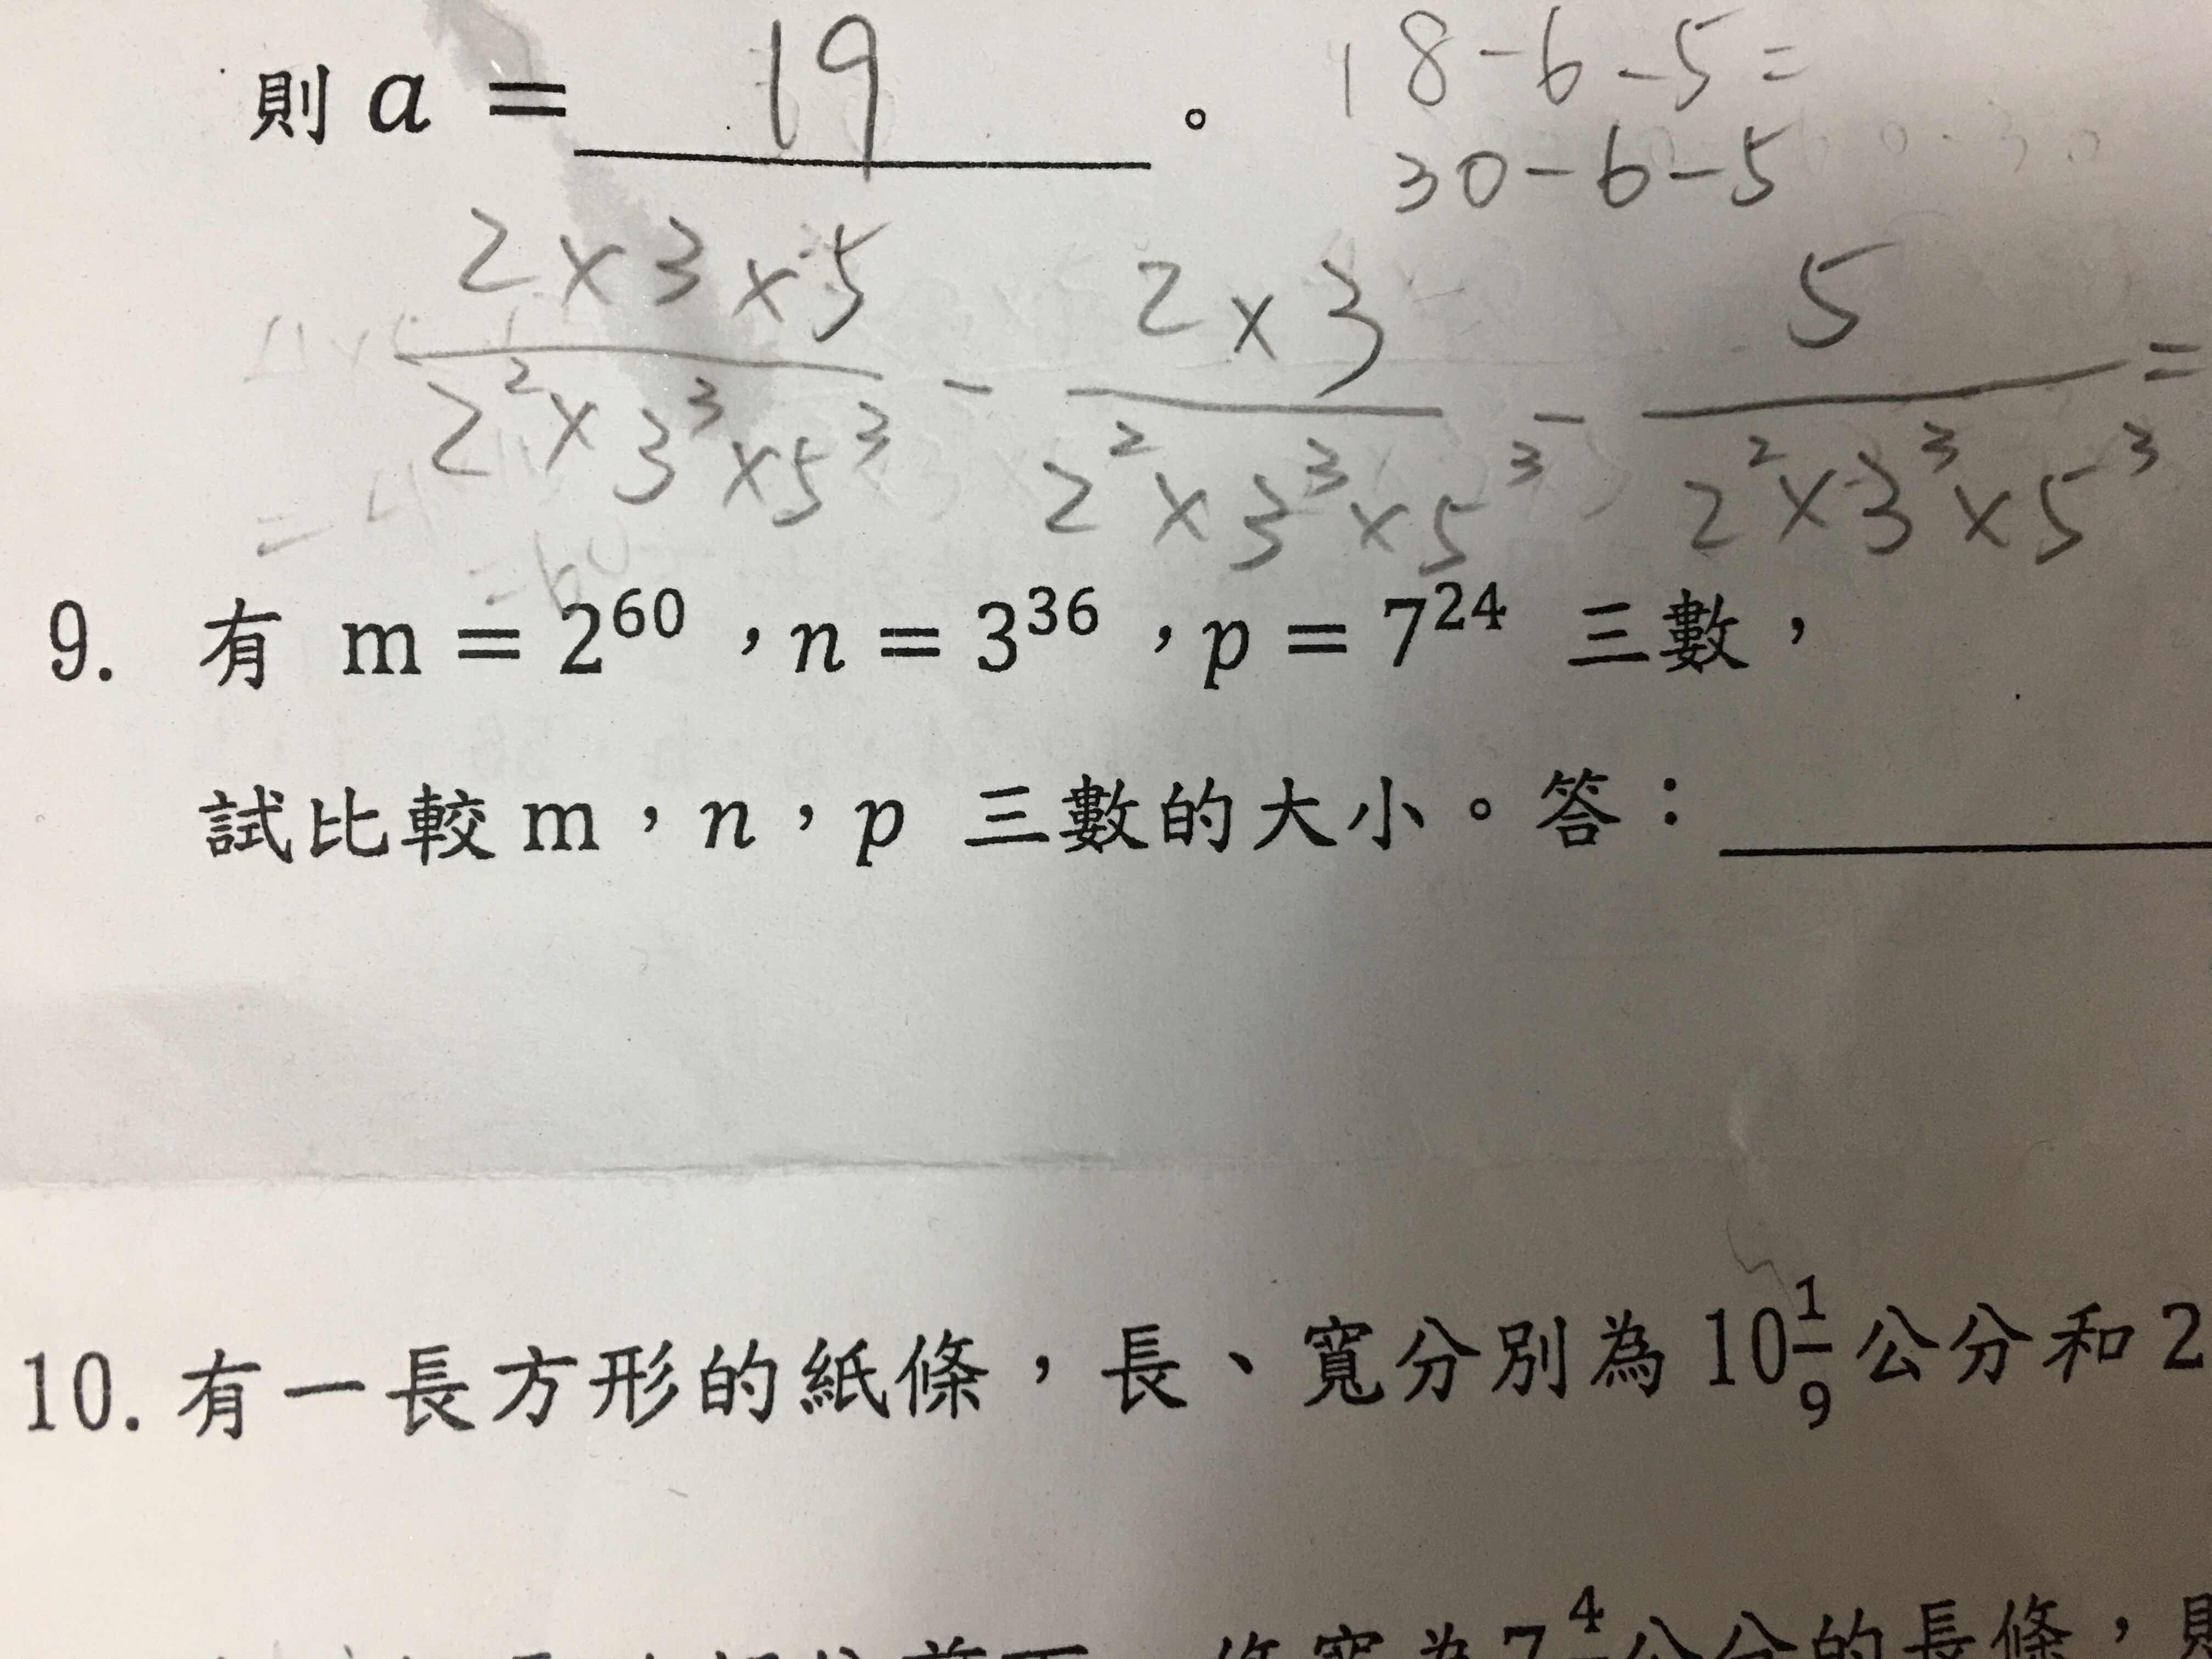 則 a = 19 。
18-6-5=
30-6-5
2×3×5 / 2²×3³×5³ - 2×3 / 2²×3³×5³ - 5 / 2²×3³×5³ =
=60
9. 有 m = 2⁶⁰，n = 3³⁶，p = 7²⁴ 三數，
試比較 m，n，p 三數的大小。答：
10. 有一長方形的紙條，長、寬分別為 10 1/9 公分和 2
寬為 7 4 公分的長條，